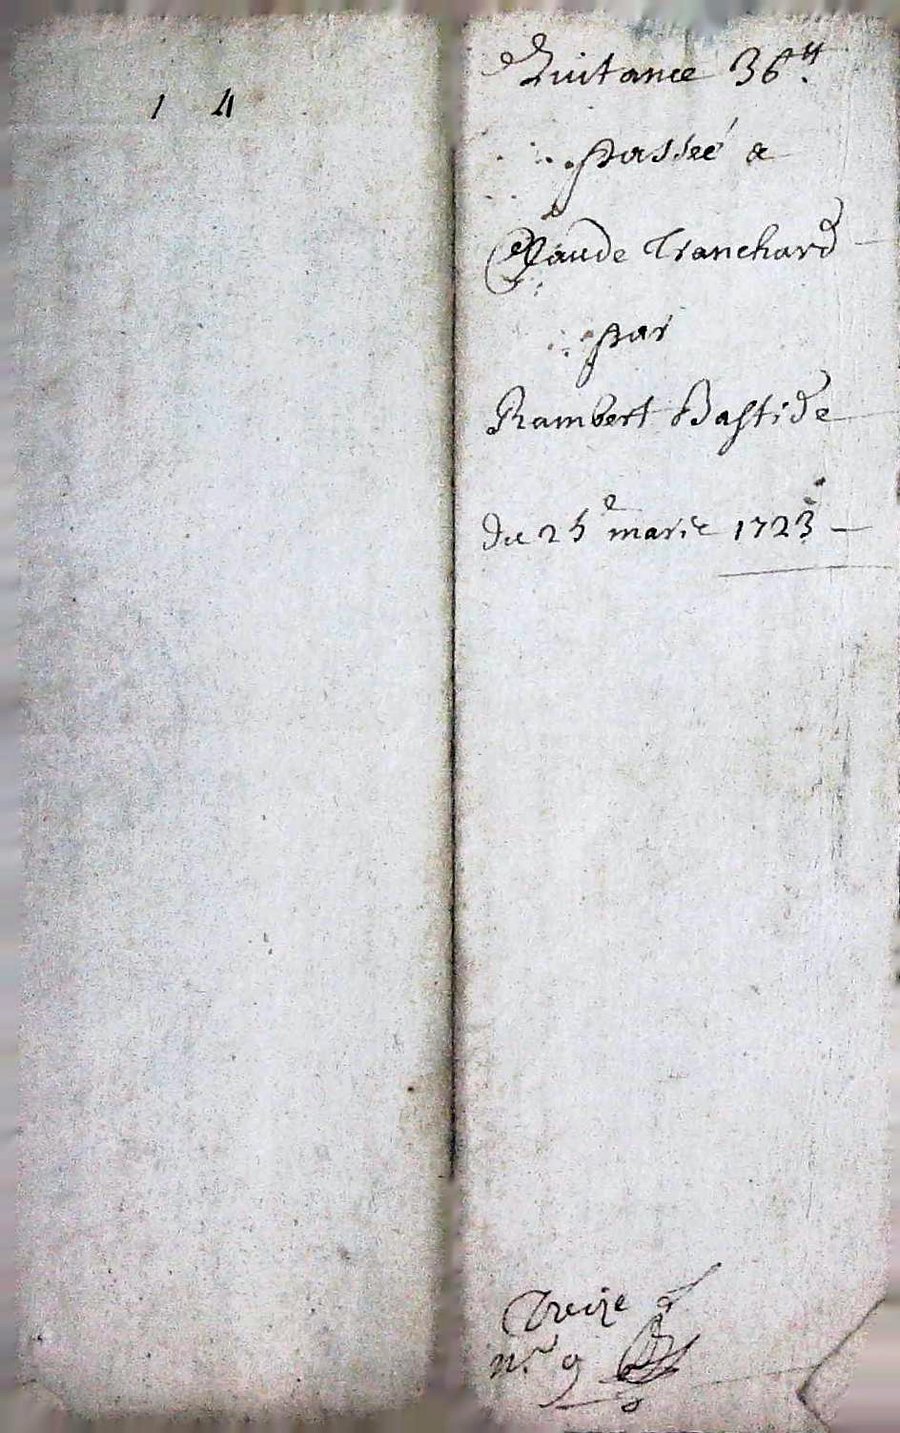 1 4
Quitance 36 ₶
passeé a
Claude Tranchard
par
Rambert Bastide
du 25e mars 1723
Treize
n.o 9